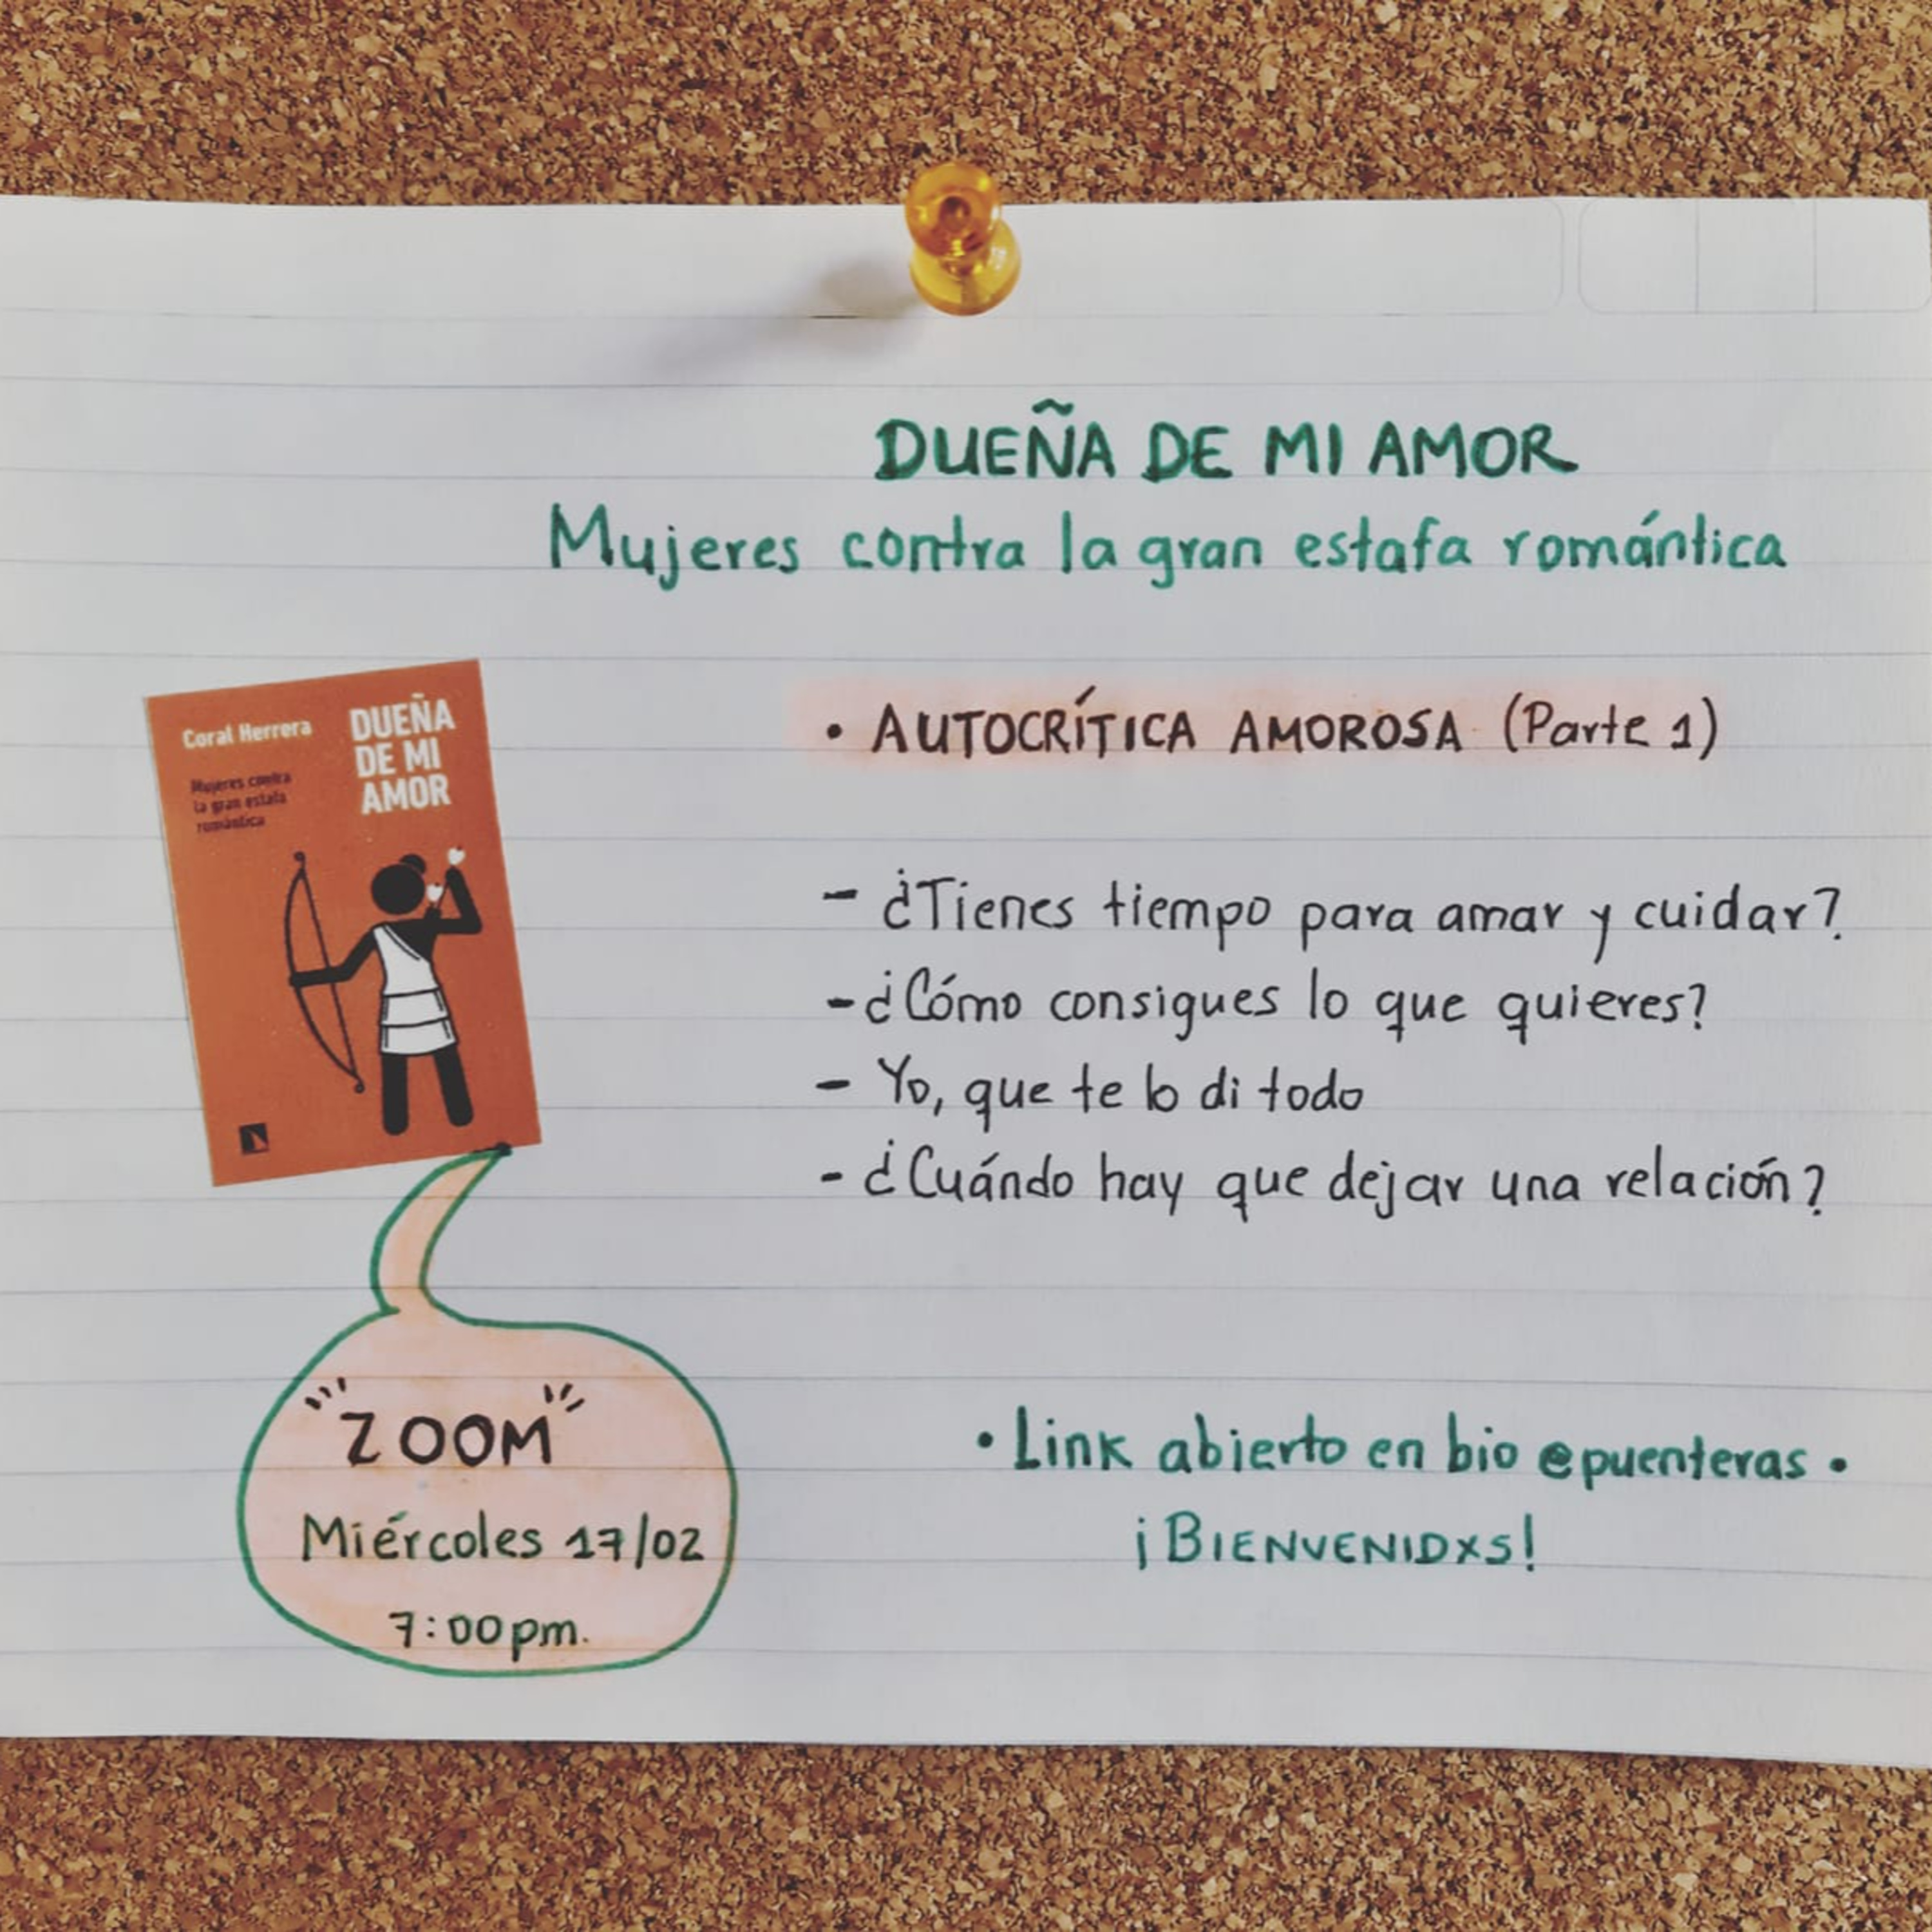 DUEÑA DE MI AMOR
Mujeres contra la gran estafa romántica
Coral Herrera
DUEÑA
DE MI
AMOR
Mujeres contra
la gran estafa
romántica
• AUTOCRÍTICA AMOROSA (Parte 1)
- ¿Tienes tiempo para amar y cuidar?
- ¿Cómo consigues lo que quieres?
- Yo, que te lo di todo
- ¿Cuándo hay que dejar una relación?
"ZOOM"
Miércoles 17/02
7:00pm.
• Link abierto en bio @puenteras •
¡BIENVENIDXS!